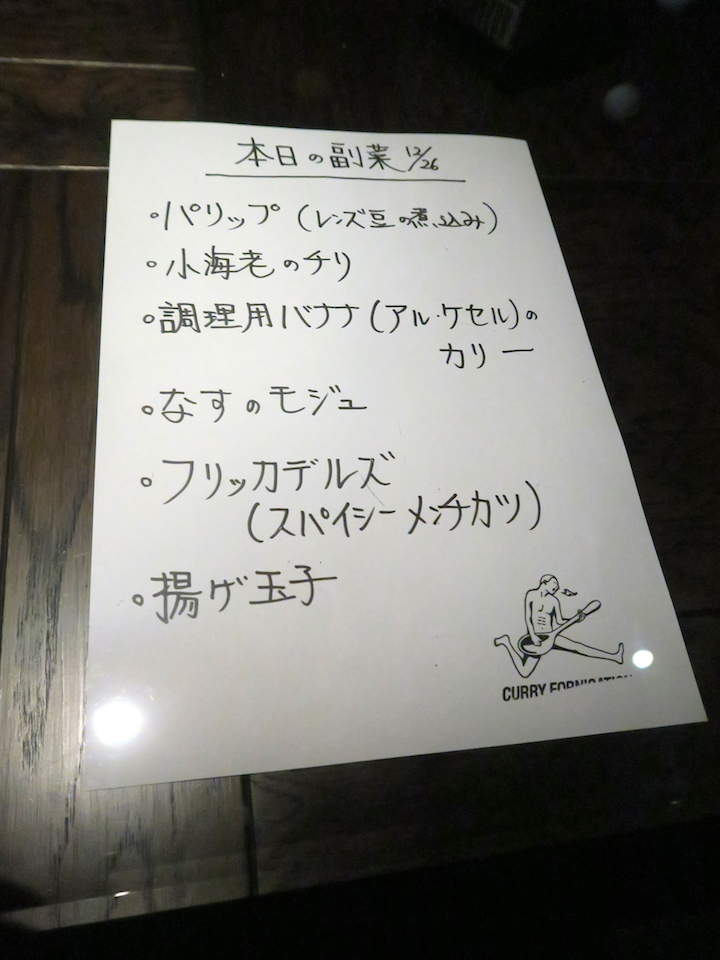 本日の副業 12/26
。パリップ(レンズ豆の煮込み)
。小海老のチリ
。調理用バナナ(アル・ケセル)の
カリー
。なすのモジュ
。フリッカデルズ
(スパイシーメンチカツ)
。揚げ玉子
CURRY